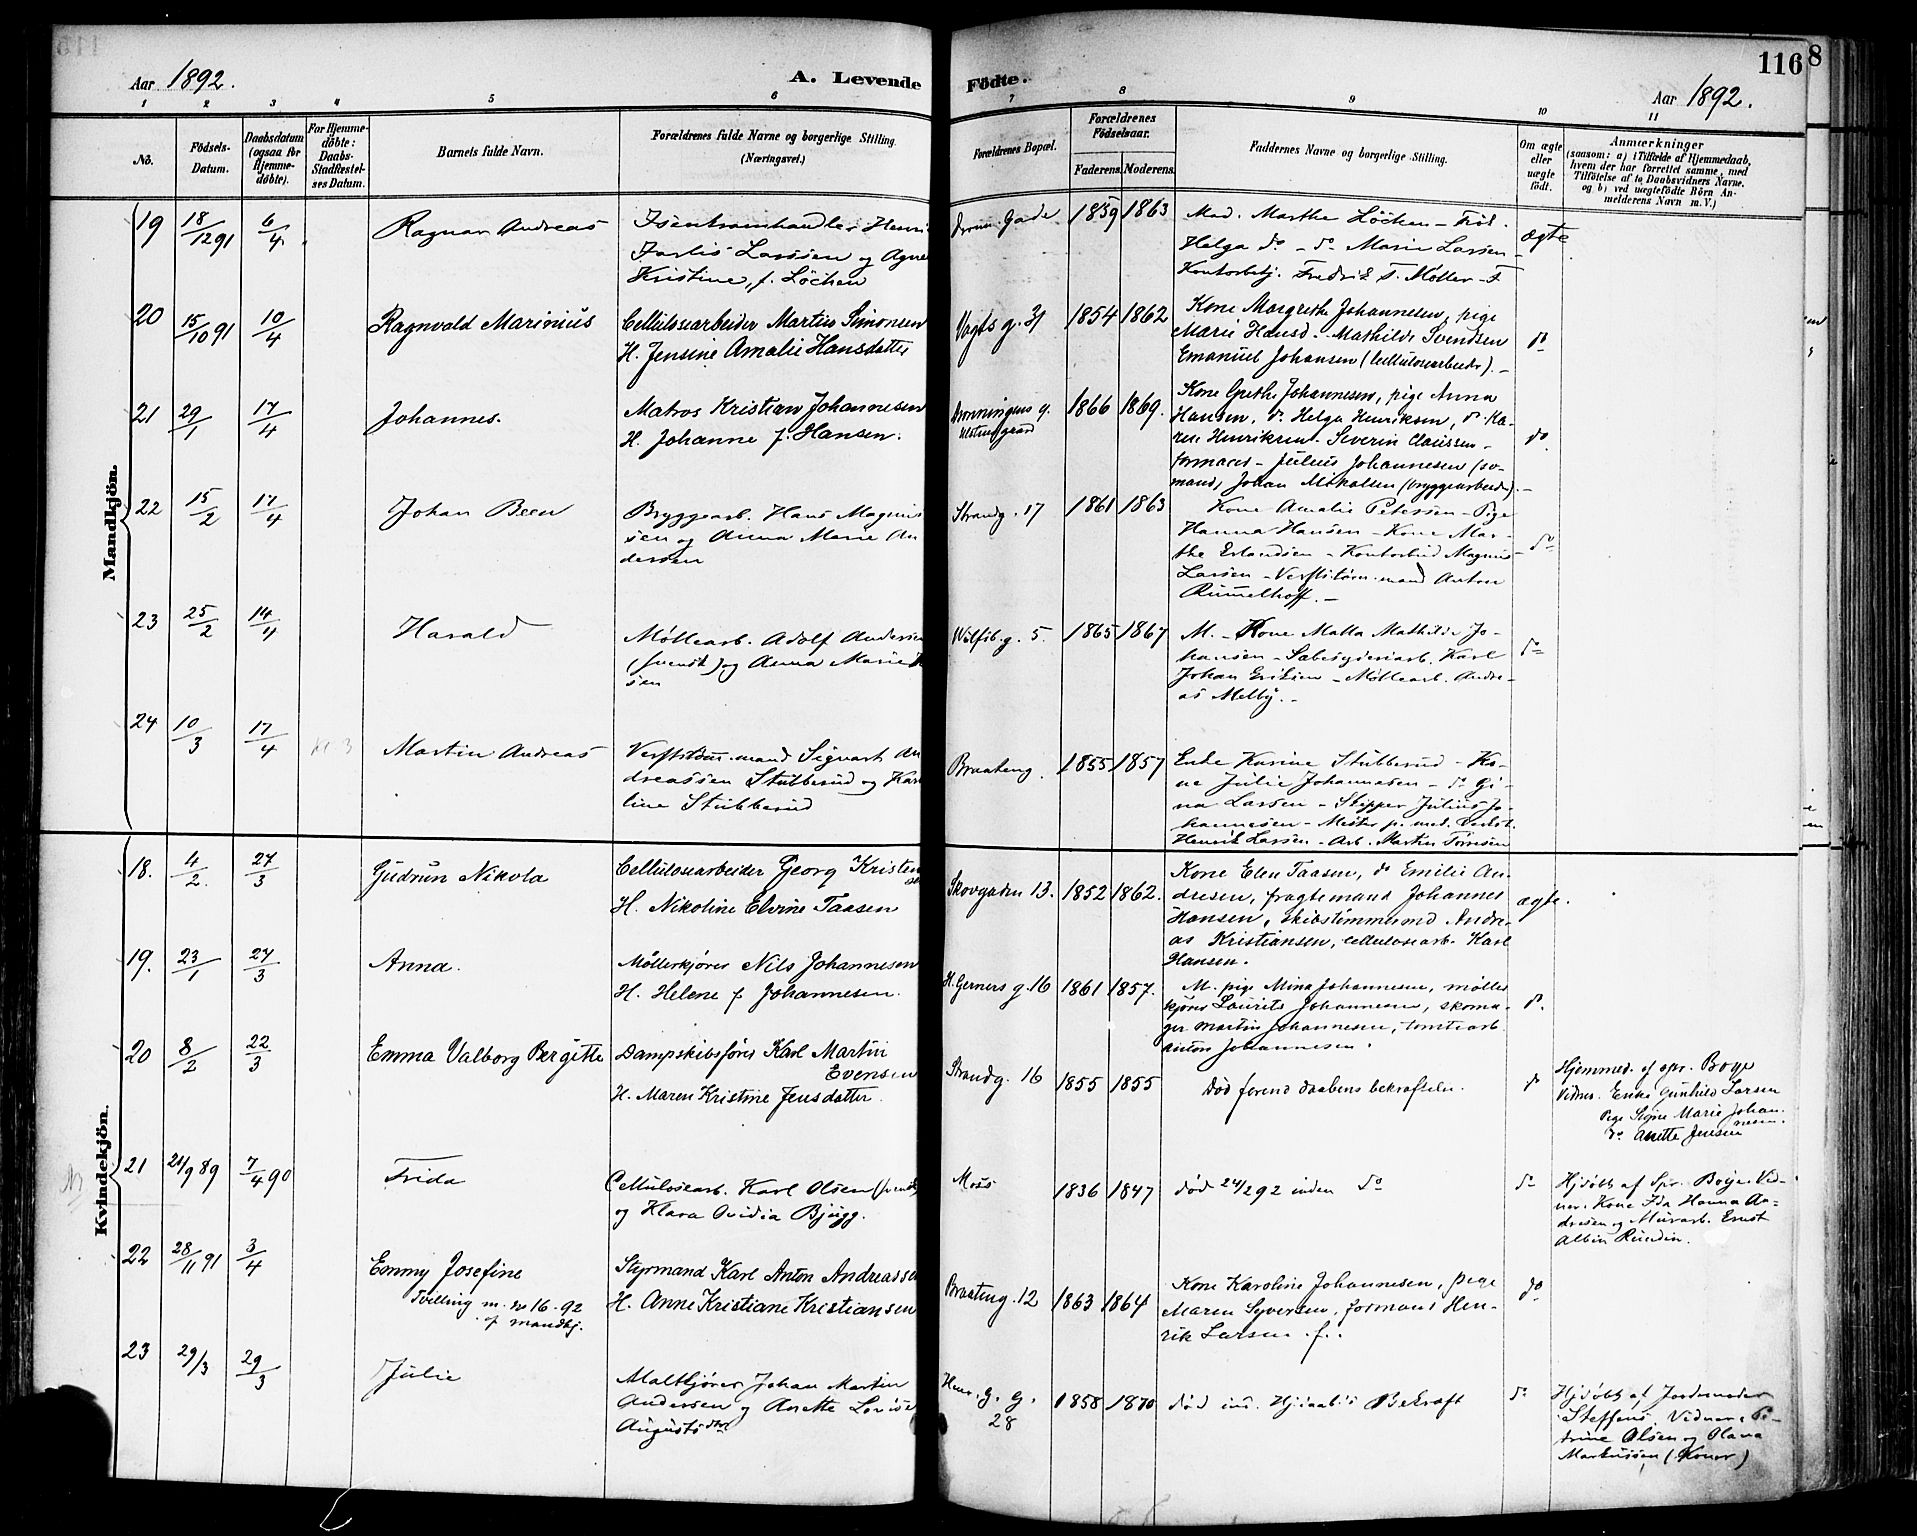 Aar 1892.
A. Levende
Födte.
116
8
Aar 1892.
1 2 3 4 5 6
7 8 9 10 11
No.
Födsels-Datum.
Daabsdatum (ogsaa for Hjemme-döbte).
For Hjemme-döbte: Daabs-Stadfæstel-ses Datum.
Barnets fulde Navn.
Forældrenes fulde Navne og borgerlige Stilling.
(Næringsvei.)
Forældrenes Bopæl.
Forældrenes Födselsaar.
Faderens. Moderens.
Faddernes Navne og borgerlige Stilling.
Om ægte eller uægte födt.
Anmærkninger
(saasom: a) i Tilfælde af Hjemmedaab,
hvem der har forrettet samme, med
Tilföielse af to Daabsvidners Navne,
og b) ved uægtefödte Börn An-
melderens Navn m. V.)
Mandkjön.
19 18/12 91 6/4 Ragnar Andreas
Kristine, f. Löchen
1859 1863
Mad. Marthe Löchen - Frök.
Helga do - do Marie Larsen -
Kontorbetj. Fredrik T. Møller - F
ægte
20 15/10 91 10/4 Ragnvald Marinius
Cellulosearbeider Martin Simonsen
H. Jensine Amalie Hansdatter
Vogts g. 31 1854 1862
Kone Margrethe Johannesen, pige
Marie Hansd. - Mathilde Svendsen
Emanuel Johansen (Cellulosearbeider). -
do
21 29/1 17/4 Johannes.
Matros Kristian Johannesen
H. Johanne f. Hansen.
Dronningens g. 1866 1869.
Kone Grethe Johannesen, pige Anna
Hansen, do Helga Henriksen, do Ka-
ren Henriksen - Severin Claussen -
formand - Julius Johannesen (sø-
mand, Johan Mikalsen (bryggearbeider). -
do
22 15/2 17/4 Johan Been
Bryggearb. Hans Magnus
sen og Anna Marie An
dersen
Strandg. 17 1861 1863
Kone Amalie Petersen - Pige
Hanna Hansen - Kone Mar-
the Erlandsen - Kontorbud Magnus
Larsen - Verftstøm.mand Anton
Rummelhoff. -
do
23 25/2 14/4 Harald
Møllearb. Adolf Andersen
(svensk) og Anna Marie
sen
g. 5. 1865 1867
M. - Kone Malla Mathilde Jo-
hansen - Sæbesyderiarb. Karl
Johan Eriksen - Møllearb. Andre-
as Melby. -
do
24 10/3 17/4 Martin Andreas
mand Sigvart An
dreassen Stubberud og Karo
line Stubberud
Braateng. 1855 1857
Enke Karine Stubberud - Ko-
ne Julie Johannesen - do Gi-
na Larsen - Skipper Julius Jo-
hannesen
Henrik Larsen - Arb. Martin
Kvindekjön.
18. 4/2. 27/3 Gudrun Nikola
Cellulosearbeider Georg Kristen
sen
H. Nikoline Elvine Taasen
Skovgaden 13. 1852 1862.
Kone Elen Taasen, do Emilie An-
dresen, fragtemand Johannes
Hansen, skibstømmermd Andre-
as Kristiansen, cellulosearb. Karl
Hansen.
ægte.
19. 23/1 27/3 Anna.
Møllerkjører Nils Johannesen
H. Helene f. Johannesen.
H. Gerners g. 16 1861 1857.
M. pige Mina Johannesen, møller
kjører Laurits Johannesen, skoma-
ger Martin Johannesen, tomtearb.
Anton Johannesen.
do.
20 8/2 22/3 Emma Valborg Bergitte
Dampskibsfører Karl Martin
Evensen
H. Maren Kristine Jensdatter.
Strandg. 16 1855 1855
Død forend daabens bekræftelse.
do
Hjemmed. af spr. Boye
Vidner. Enke Gunhild Larsen
Pige Signe Marie Johan
nesen.
do Anette Jensen
21 21/9 89 7/4 90 Frida
Cellulosearb. Karl Olsen (svensk)
og Klara Ovidia Bjugg.
Moss 1836 1847
død 24/2 92 inden do
do
Hjdøbt af Spr. Boye. Vid-
ner. Kone Ida Hanna An-
dresen og Murarb. Ernst
Albin Rundin.
22 28/11 91 3/4 Emmy Josefine
Tvilling m. no 16-92
af mandkj.
Styrmand Karl Anton Andreassen
H. Anne Kristiane Kristiansen
Braateng. 12 1863 1864
Kone Karoline Johannesen, pige
Maren Syversen, formand Hen-
rik Larsen. f..
do
23 29/3 29/3 Julie
Maltkjører Johan Martin
Andersen og Anette Lovise
Augustsdtr
g. g.
28
1858 1870
død ind. Hjdaab's Bekræft
do
Hjdøbt af Jordemoder
Steffens. Vidner: Pe-
trine Olsen og Olava
Markussen (Koner)